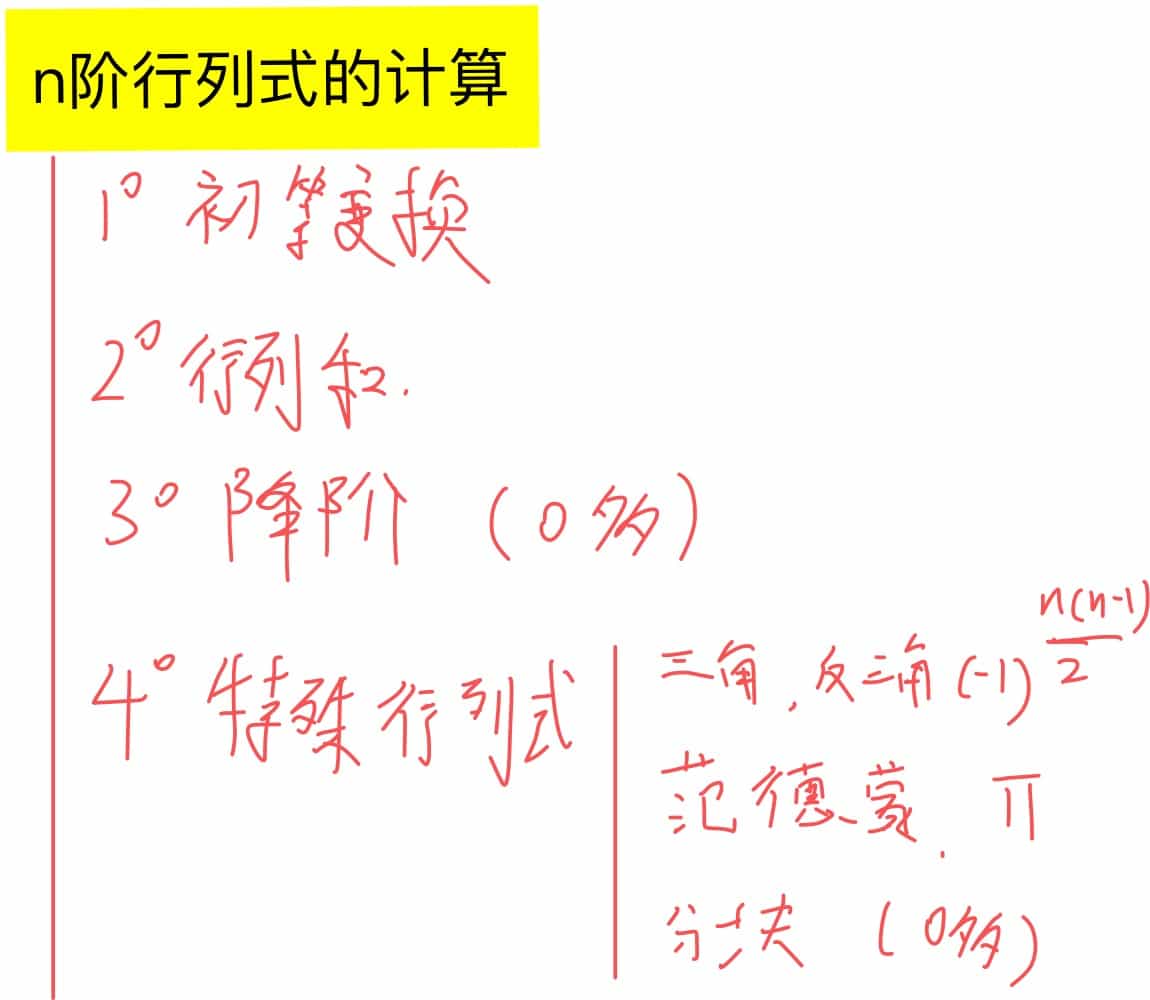 n阶行列式的计算
1° 初等变换
2° 行列和.
3° 降阶 (0多)
4° 特殊行列式
三角, 反三角 (-1)^{\frac{n(n-1)}{2}}
范德蒙. Π
分块 (0多)